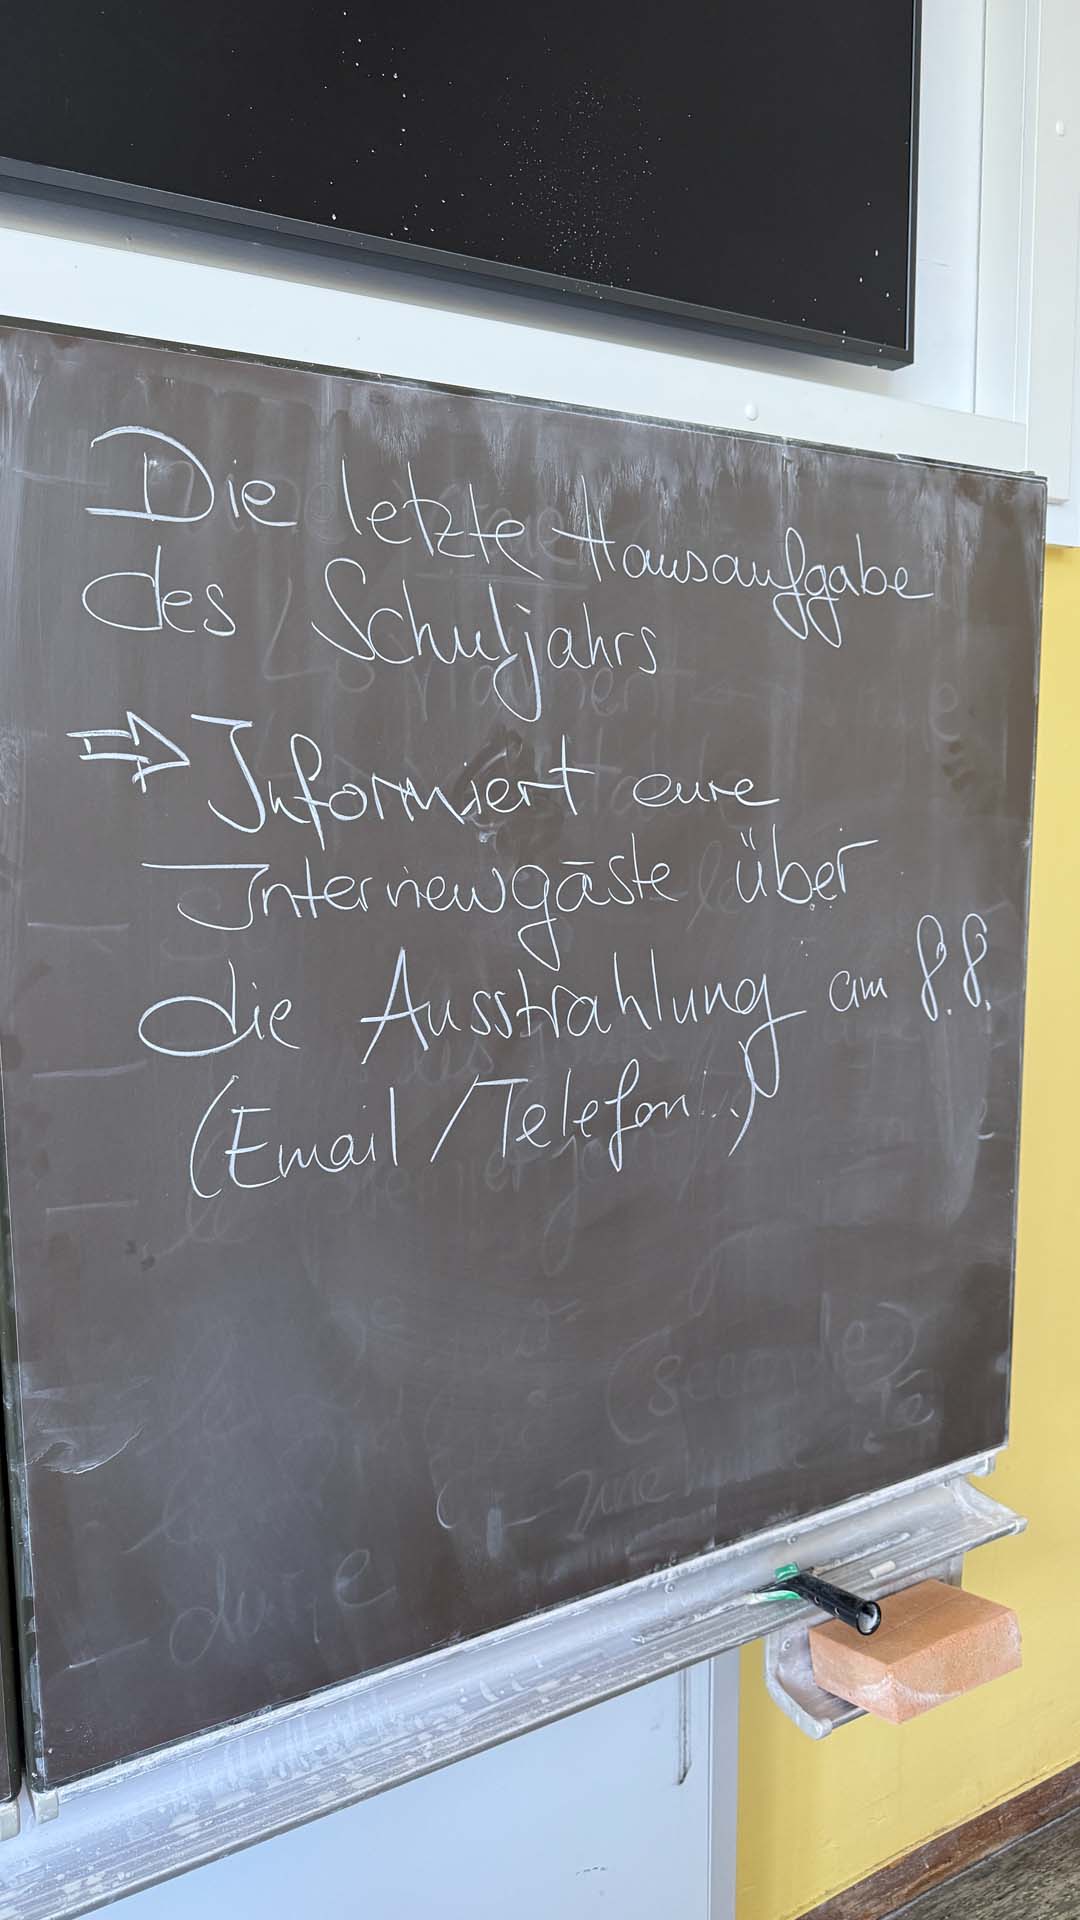 Die letzte Hausaufgabe
des Schuljahrs
⇒ Informiert eure
Interviewgäste über
die Ausstrahlung am 8.8.
(Email / Telefon...)